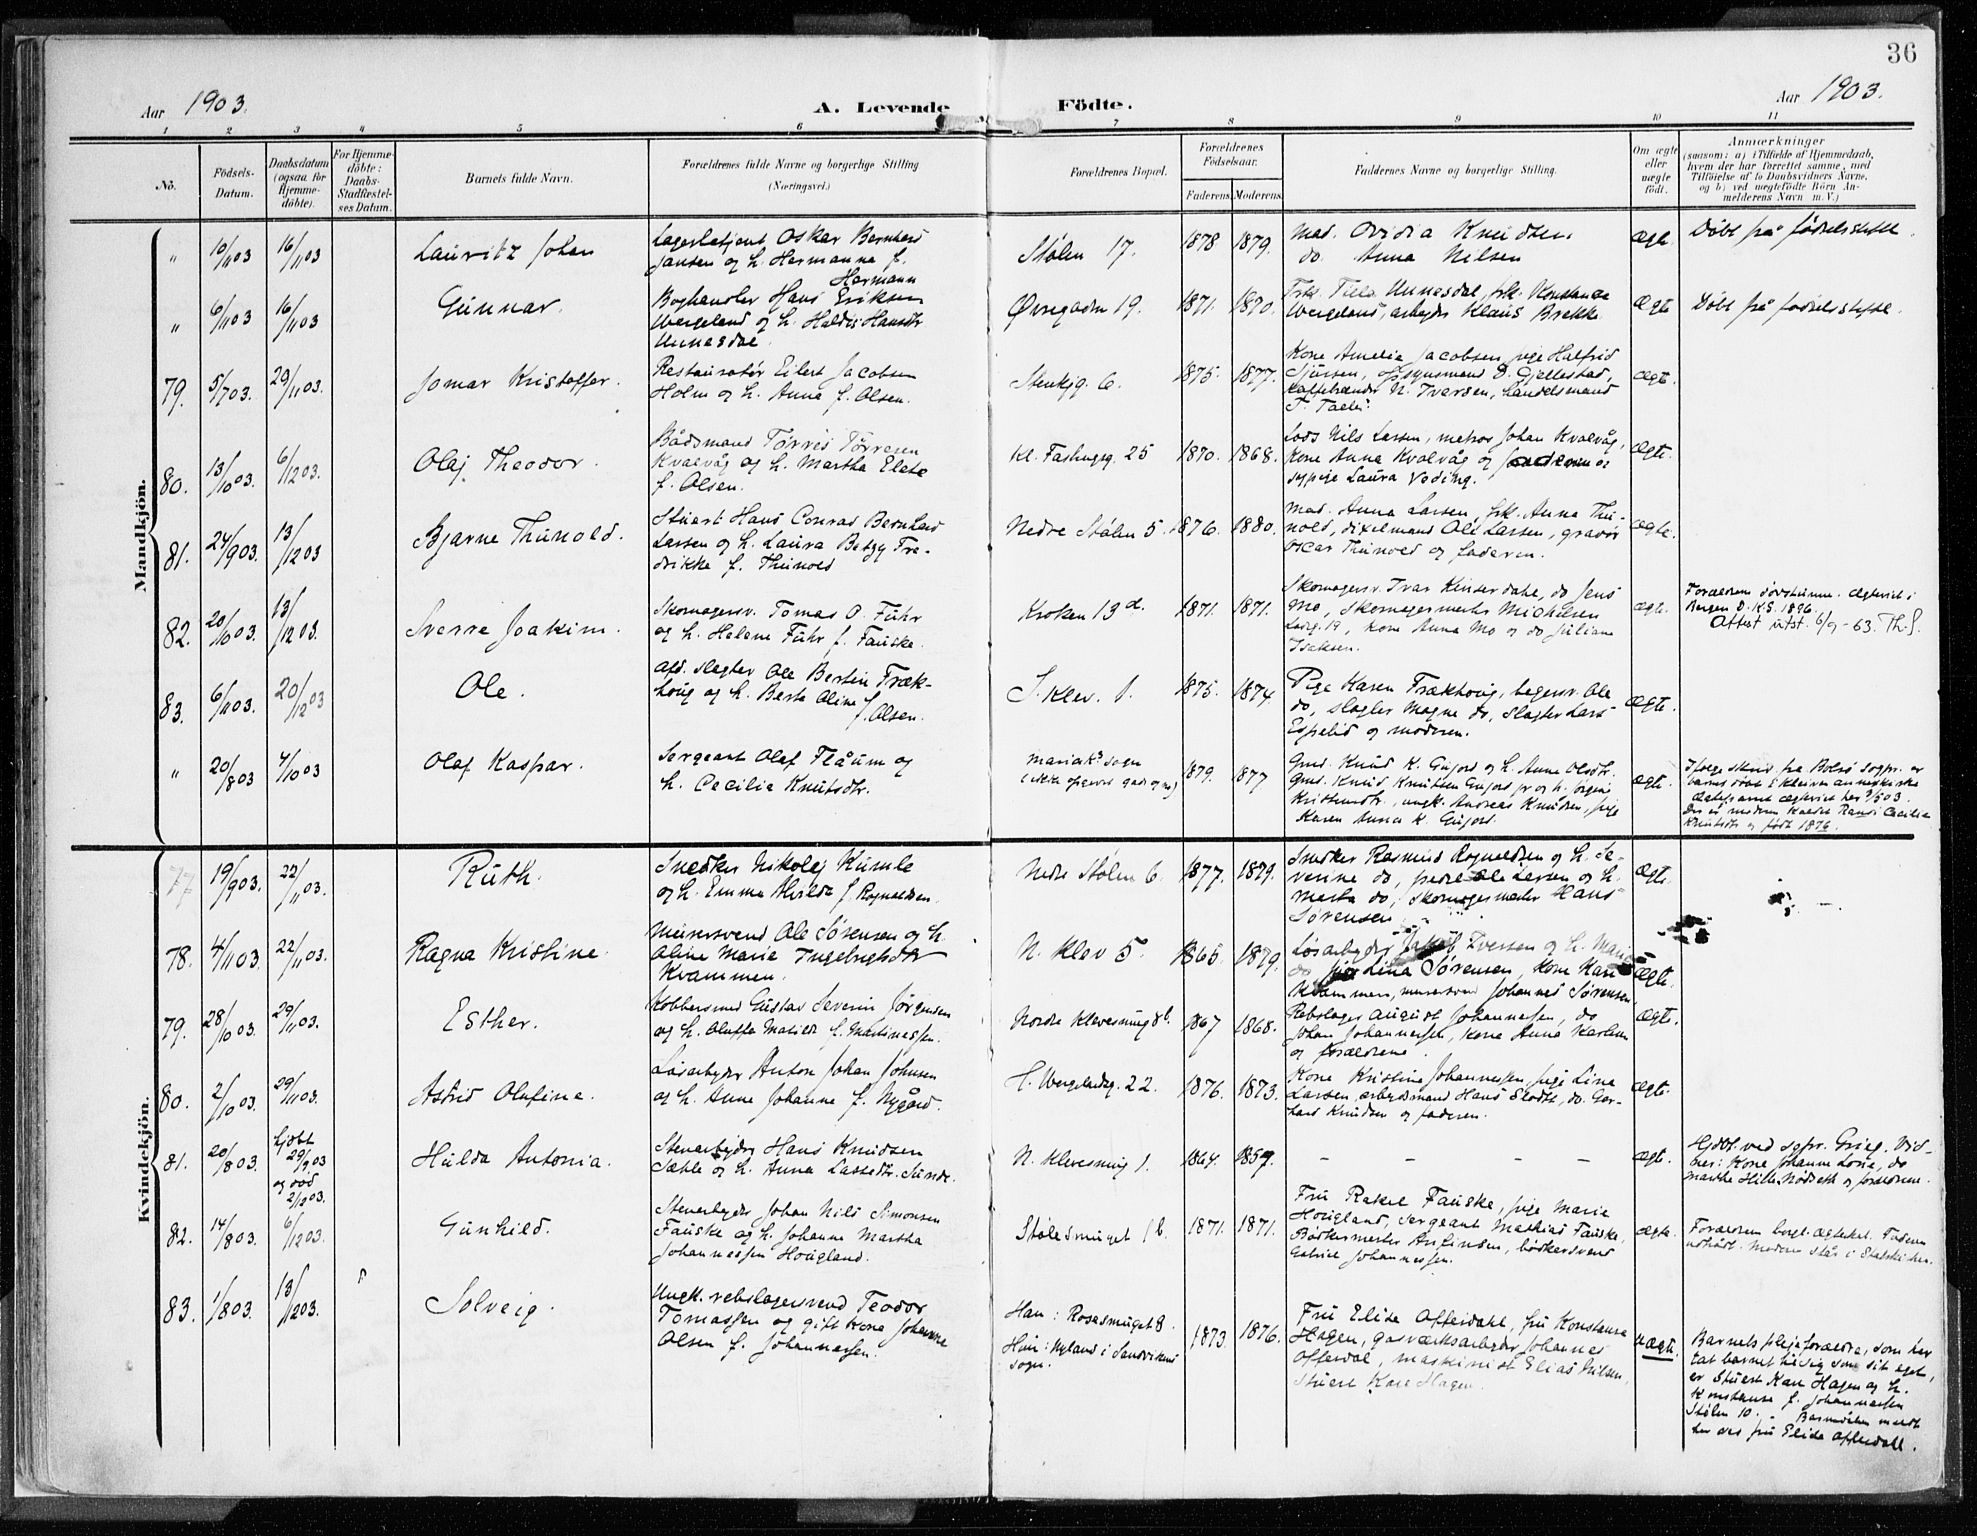 36
Aar 1903.
A. Levende Födte.
Aar 1903.
1 2 3 4 5 6 7 8 9 10 11
No.
Födsels-
Datum.
Daabsdatum
(ogsaa for
Hjemme-
döbte).
For Hjemme-
döbte:
Daabs-
Stadfæstel-
ses Datum.
Barnets fulde Navn.
Forældrenes fulde Navne og borgerlige Stilling
(Næringsvei.)
Forældrenes Bopæl.
Forældrenes
Födselsaar.
Faderens Moderens
Faddernes Navne og borgerlige Stilling.
Om ægte
eller
uægte
födt.
Anmærkninger
(saasom: a) i Tilfælde af Hjemmedaab,
hvem der har forrettet samme, med
Tilföielse af to Daabsvidners Navne,
og b) ved uægtefödte Börn An-
melderens Navn m. V.)
Mandkjön.
" 10/11 03 16/11 03 Lauritz Johan
Lagerbetjent Oskar Bernhard
Jansen og h. Hermanne f.
Hermann
Stølen 17. 1878 1879.
Mad. Ovidia Knudsen
do. Anna Nilsen
Ægte. Døbt på fødselsstift.
" 6/11 03 16/11 03 Gunnar.
Boghandler Hans Eriksen
Wergeland og h. Haldis Hansdtr.
Unnesdal.
Øvregaden 19. 1871. 1870.
Frk. Unnesdal, frk. Konstance
Wergeland, arbejder Klaus Brekke.
Ægte Døbt på fødselsstift.
79. 5/7 03. 29/11 03. Jomar Kristoffer.
Restauratør Eilert Jacobsen
Holm og h. Anna f. Olsen.
Stenkjg. 6. 1875. 1877.
Kone Amelia Jacobsen, pige Halfrid
Sjursen, opsynsmand D. Gjellestad,
kaffebrænder N. Iversen, handelsmand
Ægte.
80. 13/10 03. 6/12 03. Olaf Theodor.
Bådsmand Tørris Tørresen
Kvalvåg og h. Martha Elene
f. Olsen.
Kl. Fashugsg. 25 1870. 1868.
Lods Nils Larsen, matros Johan Kvalvåg,
Kone Anna Kvalvåg og
sypige Laura Voding.
Ægte.
81. 24/9 03. 13/12 03 Bjarne Thunold.
Stuert Hans Conrad Bernhard
Larsen og h. Laura Betzy Fre-
drikke f. Thunold
Nedre Stølen 5. 1876. 1880.
Mad. Anna Larsen, frk. Anna Thu-
nold, dixelmand Ole Larsen, gravør
Oscar Thunold og faderen.
Ægte.
82. 20/10 03. 13/12 03. Sverre Joakim.
Skomagersv. Tomas O. Fuhr
og h. Helene Fuhr f. Fauske.
Kroken 13 d. 1871. 1871.
Skomagersv. Ivar Kinserdahl, do Jens
Mo, skomagermester Michelsen
19, kone Anna Mo og do Juliane
Isaksen.
Ægte.
Forældrene døvstumme. Ægteviet i
Bergen D.K.S. 1896.
Attest utst. 6/9-63. Th.S.
83. 6/11 03. 20/12 03 Ole.
Afd. slagter Ole Bertin Træk-
houg og h. Berta Oline
f. Olsen.
S. Klev. 1. 1875. 1874
Pige Karen Trækhoug, bagersv. Ole
do, slagter Magne do, slagter Lars
Espelid og moderen.
Ægte.
" 20/8 03 4/10 03 Olaf Kaspar.
Sergeant Olaf Flåum og
h. Cecilia Knutsdtr.
Mariak's sogn
(ikke opgivet gade og no) 1879. 1877
Gmd. Knud K. Gujord og h. Anne Olsdtr.
Gmd. Knud Knutsen Gujord jr og h. Jørgine
Kristensdtr., ungk. Andreas Knudsen, pige
Karen Anna K. Gujord.
Ægte.
Ifølge skriv. fra Bolsø sogpr. er
barnet døbt
ægteviet her 03.
Der er moderen kaldet Randi Cecilia
Knutsdtr og født 1876.
Kvindekjön.
77 19/9 03. 22/11 03. Ruth.
Snedker Nikolej Kumle
og h. Emma Alvilda f. Rognaldsen.
Nedre Stølen 6. 1877. 1879.
Snedker Rasmus Rognaldsen og h. Se-
verine do, Ole Larsen og h.
Marta do, skomagermester Hans
Sørensen.
Ægte.
78. 4/11 03. 22/11 03. Ragna Kristine.
Murersvend Ole Sørensen og h.
Oline Marie Ingebrigtsdtr
Kvammen.
N. Klev 5. 1865. 1879.
Løsarbejder Iversen og h. Marie
do, Lina Sørensen, kone Kari
Kvammen, murersvend Johannes Sørensen.
Ægte.
79. 28/10 03. 29/11 03. Esther.
Kobbersmed Gustav Severin Jørgensen
og h. Oluffa Matilde f. Martinessen.
Nordre Klevesmug 8 b. 1867 1868.
Rebslager August Johannessen, do
Johan Johannessen, kone Anna Karlsen
og forældrene.
Ægte.
80. 2/10 03. 29/11 03. Astrid Olufine.
Løsarbejder Anton Johan Johnsen
og h. Anne Johanne f. Nygård.
H. Wergelandsg. 22. 1876. 1873.
Kone Kristine Johannessen, pige Lina
Larsen, arbejdsmand Hans do. Ger-
hard Knudsen og faderen.
Ægte.
81. 20/8 03. hjdbt 29/9 03 og 2/12 03. Hulda Antonia.
Stenarbejder Hans Knudsen
Sæhle og h. Anna Lassedtr. Sunde.
N. Klevesmug 1. 1864. 1859.
– – – –
Ægte.
Hjdbt. ved sogpr. Grieg. Vid-
ner: Kone Johanne Losie, do
Marthe Hille Nødseth og forældrene.
82. 14/8 03. 6/12 03. Gunhild.
Stenarbejder Johan Nils Simonsen
Fauske og h. Johanne Martha
Johannessen Hougland.
Stølesmuget 1 b. 1871. 1871.
Fru Rakel Fauske, pige Marie
Hougland, sergeant Mathias Fauske,
Bødkermester Anfinsen, bødkersvend
Gabriel Johannessen.
Ægte.
Forældrene borgl. ægteviet. Faderen
udtrådt. Moderen står i Statskirken.
83. 1/8 03. 13/12 03. Solveig.
Ungk. rebslagersvend Teodor
Tomassen og gift kone Johanne
Olsen f. Johannessen.
Han: Rosesmuget 8.
Hun: Nyland i Sandvikens
sogn.
1873. 1876.
Fru Elida Offerdahl, fru Konstanse
Hagen, gasværksarbejder Johannes
Offerdal, maskinist Elias Nilsen,
Stuert Kare Hagen.
Uægte.
Barnets plejeforældre, som har
tat barnet til sig som sit eget,
er Stuert Kare Hagen og h.
Konstanse f. Johannessen
Stølen 10. Barnedåben meldt
her ved fru Elida Offerdahl.